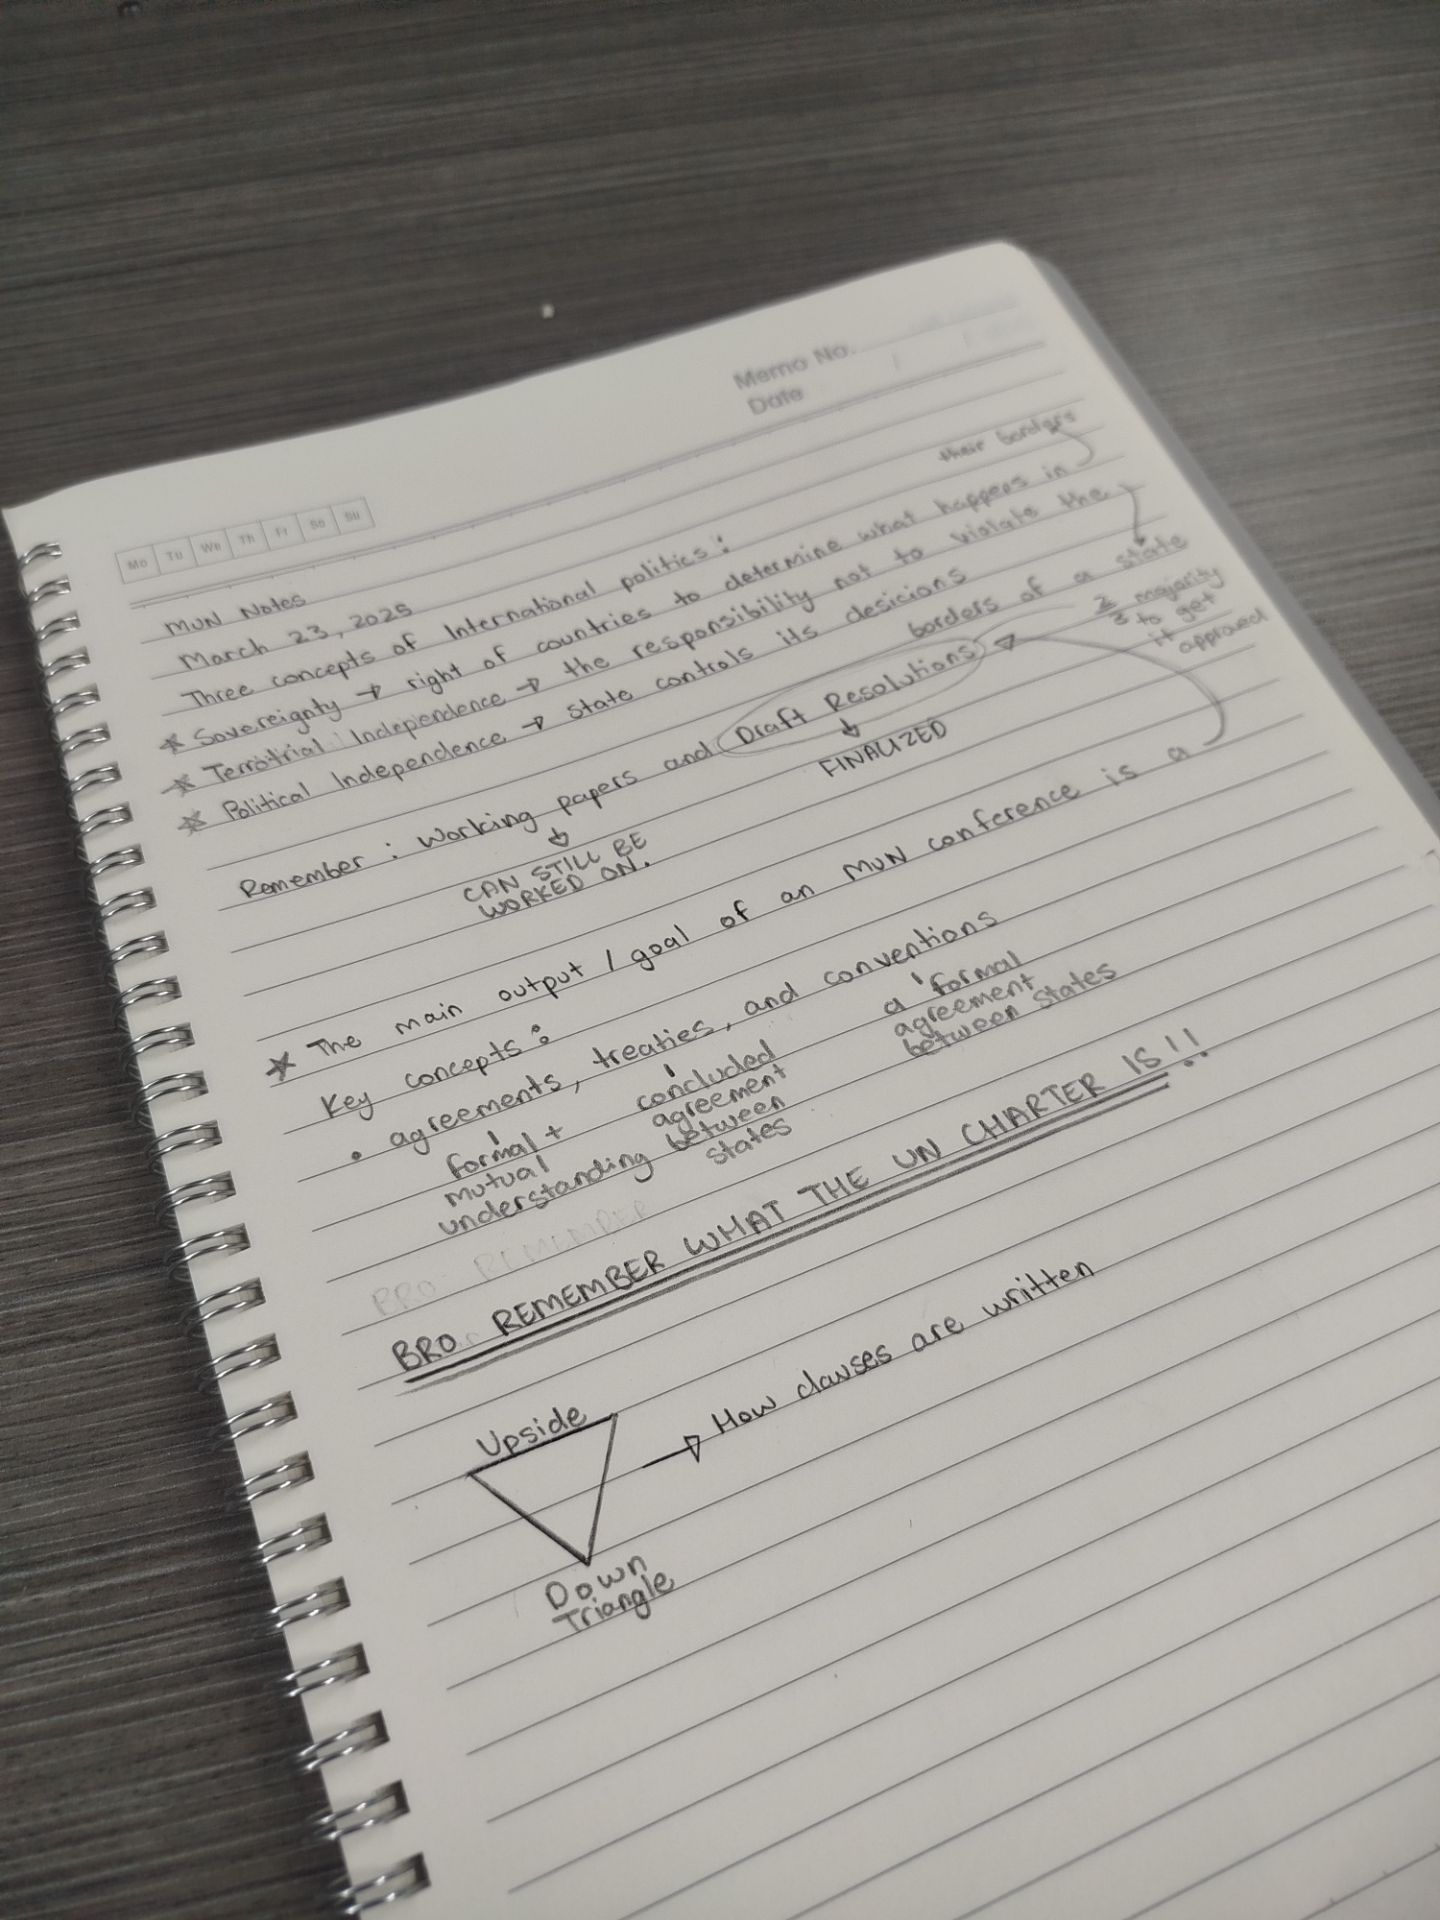 Memo No.
Date
Mo Tu We Th Fr Sa Su
MUN Notes
March 23, 2025
Three concepts of International politics:
their borders
★ Sovereignty → right of countries to determine what happens in
★ Terrotrial Independence → the responsibility not to violate the
borders of a state
★ Political Independence → state controls its desicions
2/3 majority
to get
it
approved
Remember: Working papers and Draft Resolutions
FINALIZED
CAN STILL BE
WORKED ON.
★ The main output / goal of an MUN conference is a
Key concepts:
• agreements, treaties, and conventions
formal +
mutual
understanding
concluded
agreement
between
states
a formal
agreement
between states
BRO REMEMBER
BRO REMEMBER WHAT THE UN CHARTER IS!!
Upside
Down
Triangle
→ How clauses are written